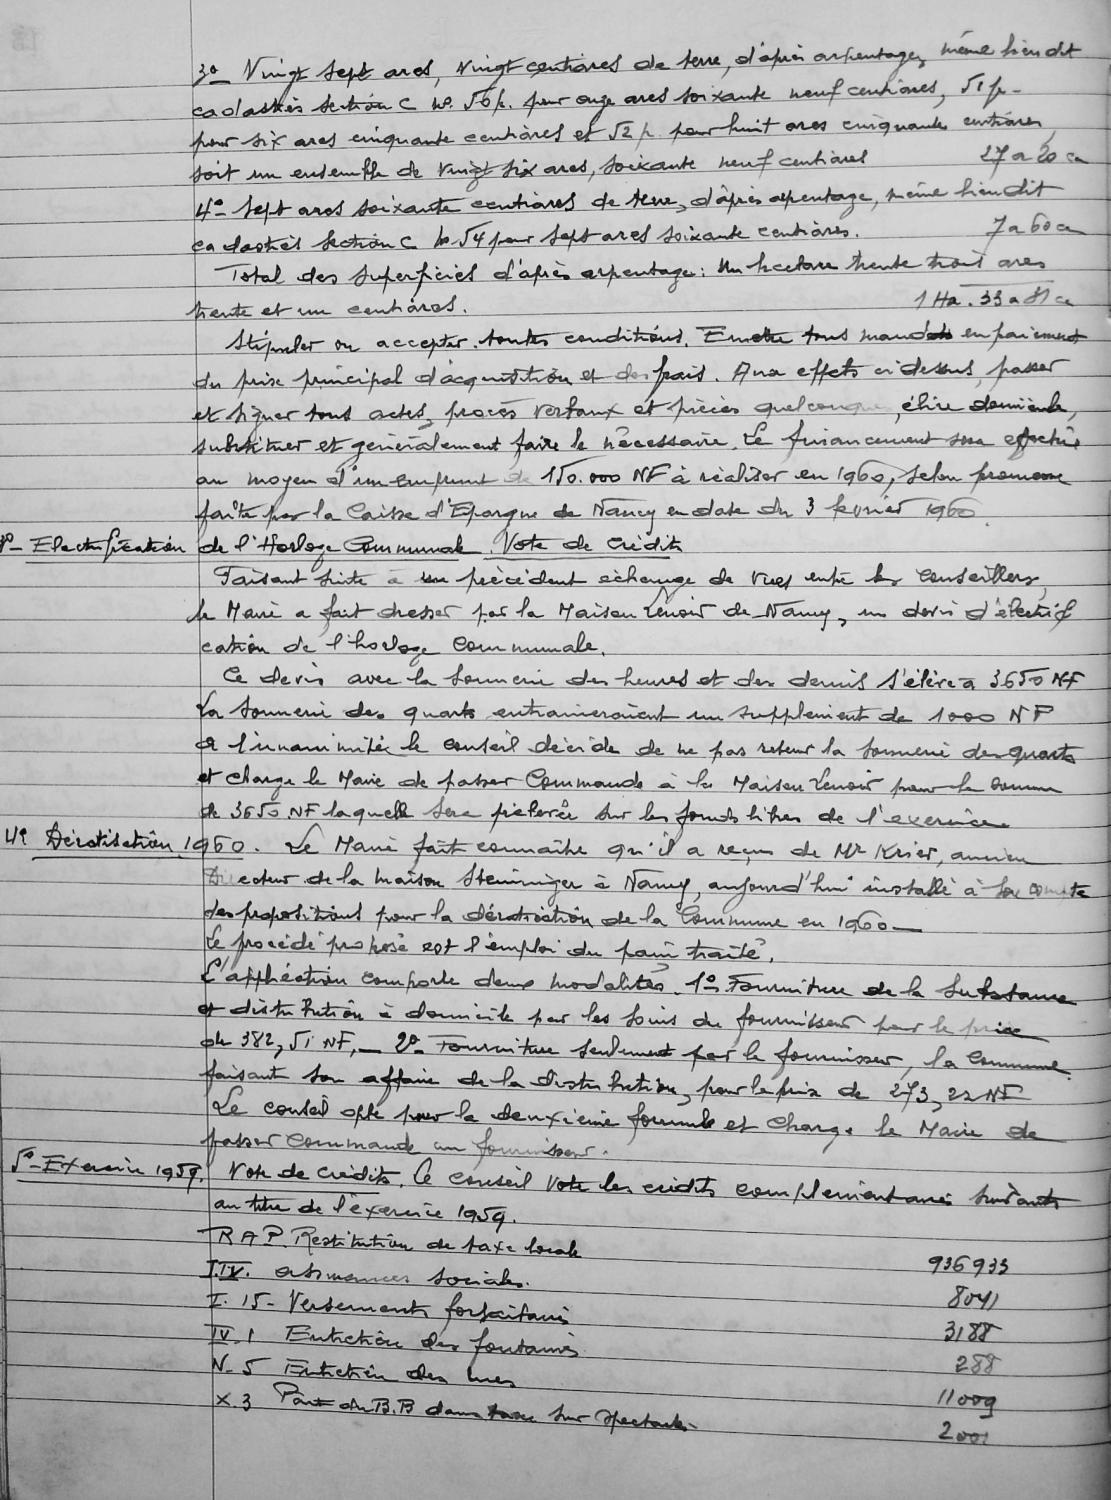 3º_ Vingt sept ares, vingt centiares de terre, d'après arpentage, même lieu dit
cadastrés section C nº. 50p. pour onze ares soixante neuf centiares, 51p_
pour six ares cinquante centiares et 52p. pour huit ares cinquante centiares,
soit un ensemble de vingt six ares, soixante neuf centiares 27 a 20 ca
4º_ Sept ares soixante centiares de terre, d'après arpentage, même lieu dit
cadastrés section C nº 54 pour sept ares soixante centiares. 7 a 60 ca
Total des superficies d'après arpentage: Un hectare trente trois ares
trente et un centiares. 1 Ha. 33 a 31 ca
Stipuler ou accepter toutes conditions. Emettre tous mandats en paiement
du prix principal d'acquisition et des frais. Aux effets ci dessus, passer
et signer tous actes, procès verbaux et pièces quelconque, élire domicile,
substituer et généralement faire le nécessaire. Le financement sera effectué
au moyen d'un emprunt de 150.000 NF à réaliser en 1960, selon promesse
faite par la Caisse d'Epargne de Nancy en date du 3 février 1960.
3º_ Electrification de l'Horloge Communale. Vote de Crédits
Faisant suite à un précédent échange de vues entre les Conseillers,
le Maire a fait dresser par la Maison Lenoir de Nancy, un devis d'électrifi
cation de l'horloge Communale.
Ce devis avec la sonnerie des heures et des demis s'élève à 3650 NF
La sonnerie des quarts entraineraient un supplément de 1000 NF
A l'unanimité le conseil décide de ne pas retenir la sonnerie des quarts
et charge le Maire de passer Commande à la Maison Lenoir pour la somme
de 3650 NF laquelle sera prélevée sur les fonds libres de l'exercice
4º Dératisation 1960. Le Maire fait connaître qu'il a reçu de Mr Krier, ancien
Directeur de la maison Steininger à Nancy, aujourd'hui installé à son compte
des propositions pour la dératisation de la Commune en 1960_
Le procédé proposé est l'emploi du pain traité.
L'application comporte deux modalités. 1º_ Fourniture de la substance
et distribution à domicile par les soins du fournisseur pour le prix
de 382,51 NF,_ 2º_ Fourniture seulement par le fournisseur, la Commune
faisant son affaire de la distribution, pour le prix de 273,22 NF
Le conseil opte pour la deuxième formule et charge le Maire de
passer commande au fournisseur.
5º_ Exercice 1959. Vote de crédits. Le conseil vote les crédits complémentaires suivants
au titre de l'exercice 1959.
R A P. Restitution de taxe locale 936933
I.IV. assurances sociales. 8041
I. 15_ Versements forfaitaires 3188
IV. 1 Entretien des fontaines 288
N_ 5 Entretien des rues 11009
X. 3 Part du B.B dans taxe sur spectacles_ 2001